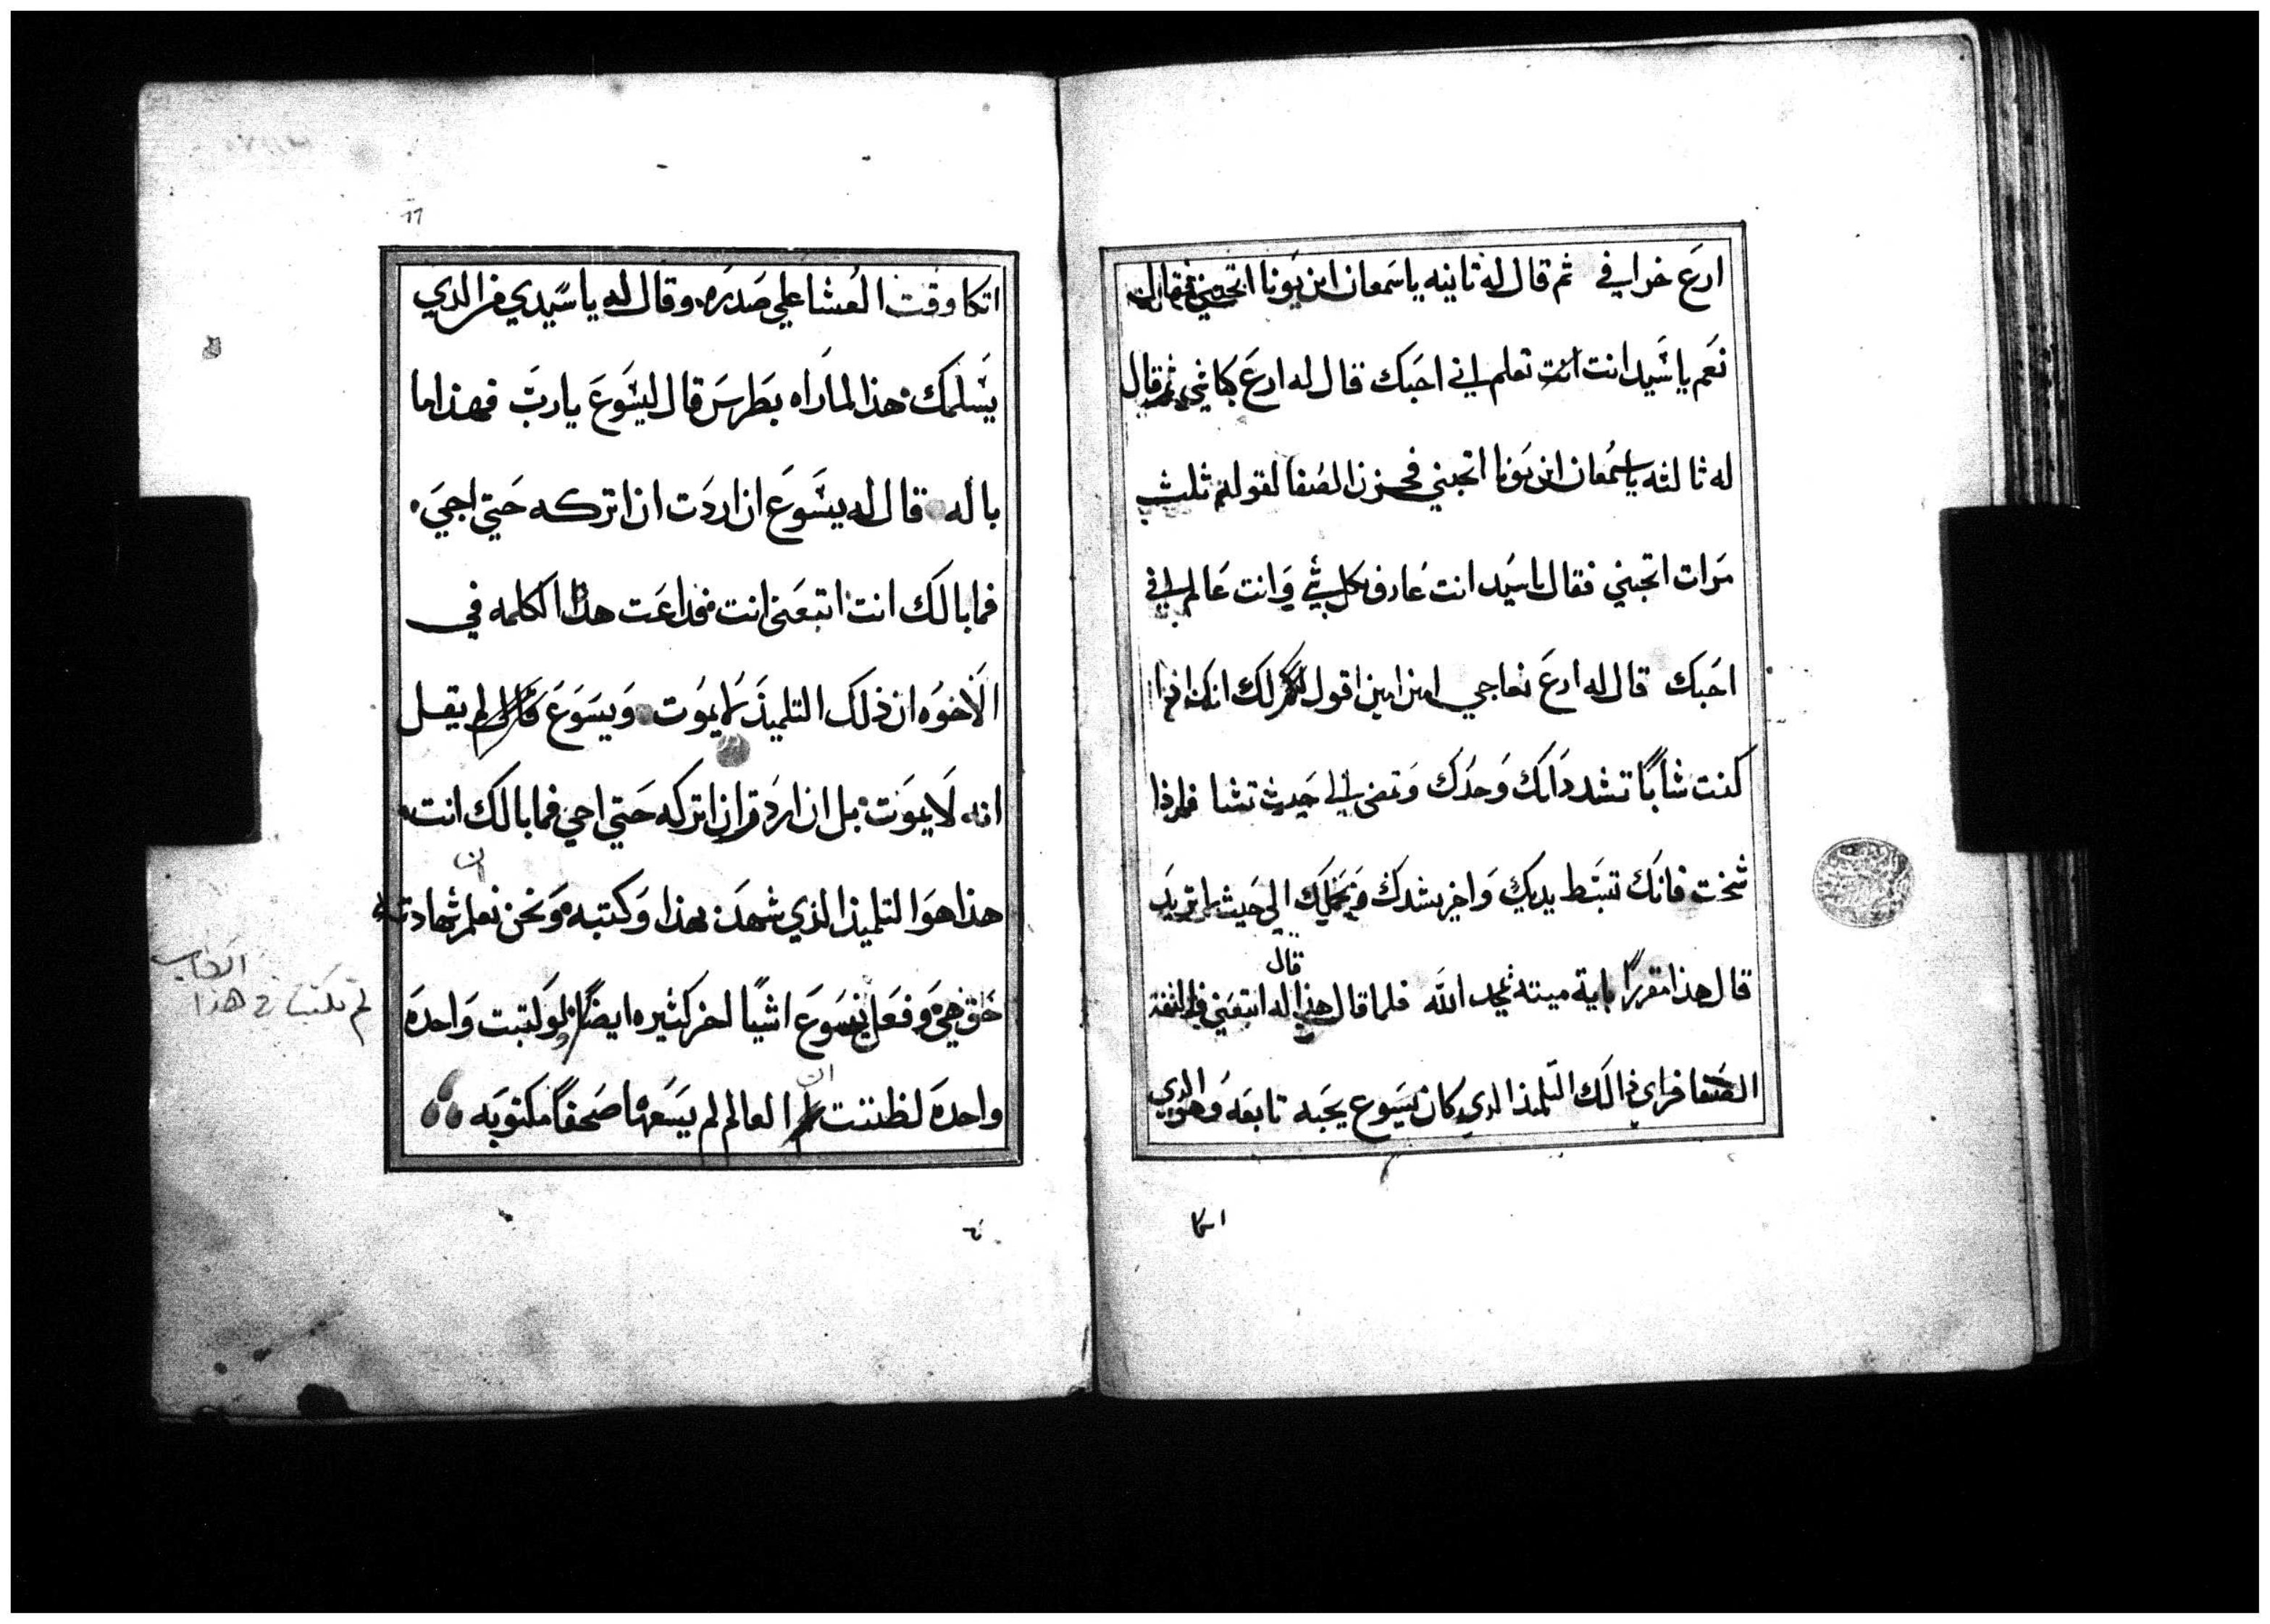 ارع خرافي ثم قال له ثانيه ياسمعان ابن يونا اتحبني فقال له
نعم ياسيد انت انت تعلم اني احبك قال له ارع كباشي ثم قال
له ثالثه ياسمعان ابن يونا اتحبني فحزن الصفا لقوله ثلث
مرات اتحبني فقال ياسيد انت عارف بكل شي وانت عالم اني
احبك قال له ارع نعاجي امين امين اقول لك انك اذا
كنت شابا تشد ذاتك وحدك وتمضي الي حيث تشا فاذا
شخت فانك تبسط يديك واخر يشدك ويحملك الي حيث لا تريد
قال هذا مقررا باية ميته يمجد الله فلما قال هذا
قال
له اتبعني فالتفت
الصفا فراي ذالك التلميذ الدي كان يسوع يحبه تابعه وهو الدي
اتكا
اتكا وقت العشا علي صدره وقال له ياسيدي من الدي
يسلمك هذا لما راه بطرس قال ليسوع يارب فهذا ما
باله قال له يسوع ان اردت ان اتركه حتي اجي
فما بالك انت اتبعني انت فذاعت هذا الكلمه في
الاخوه ان ذلك التلميذ لا يموت ويسوع لم يقل
انه لا يموت بل ان اردت ان اتركه حتي اجي فما بالك انت
ان
هذا هو التلميذ الذي شهد بهذا وكتبه ونحن نعلم شهادته
حق هي وفعل يسوع اشيا اخر كثيره ايضا لو كتبت واحده
لم تكتب في هذا
الكتاب
ان
واحده لظننت العالم لم يسعها صحفا مكتوبه